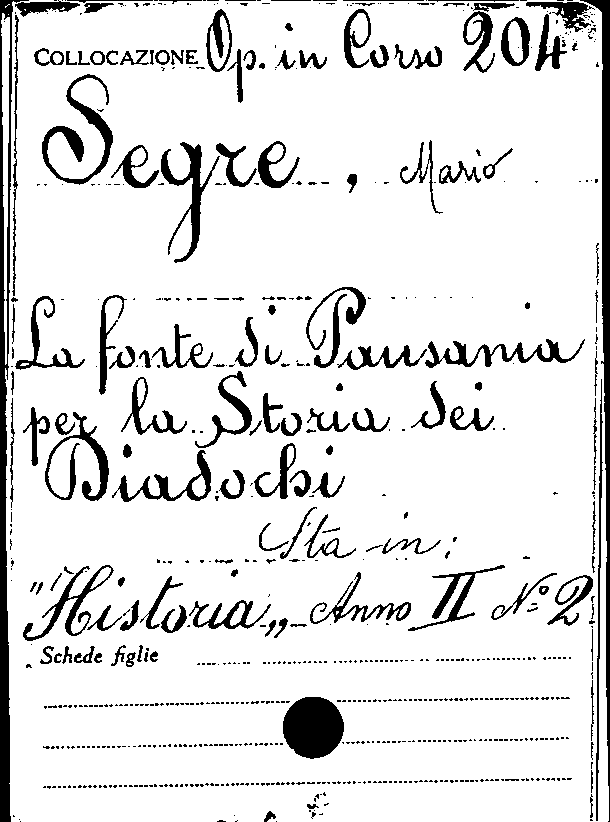 COLLOCAZIONE Op. in Corso 204
Segre, Mario
La fonte di Pausania
per la Storia dei
Diadochi
Sta in:
"Historia„ Anno II N.º 2
Schede figlie